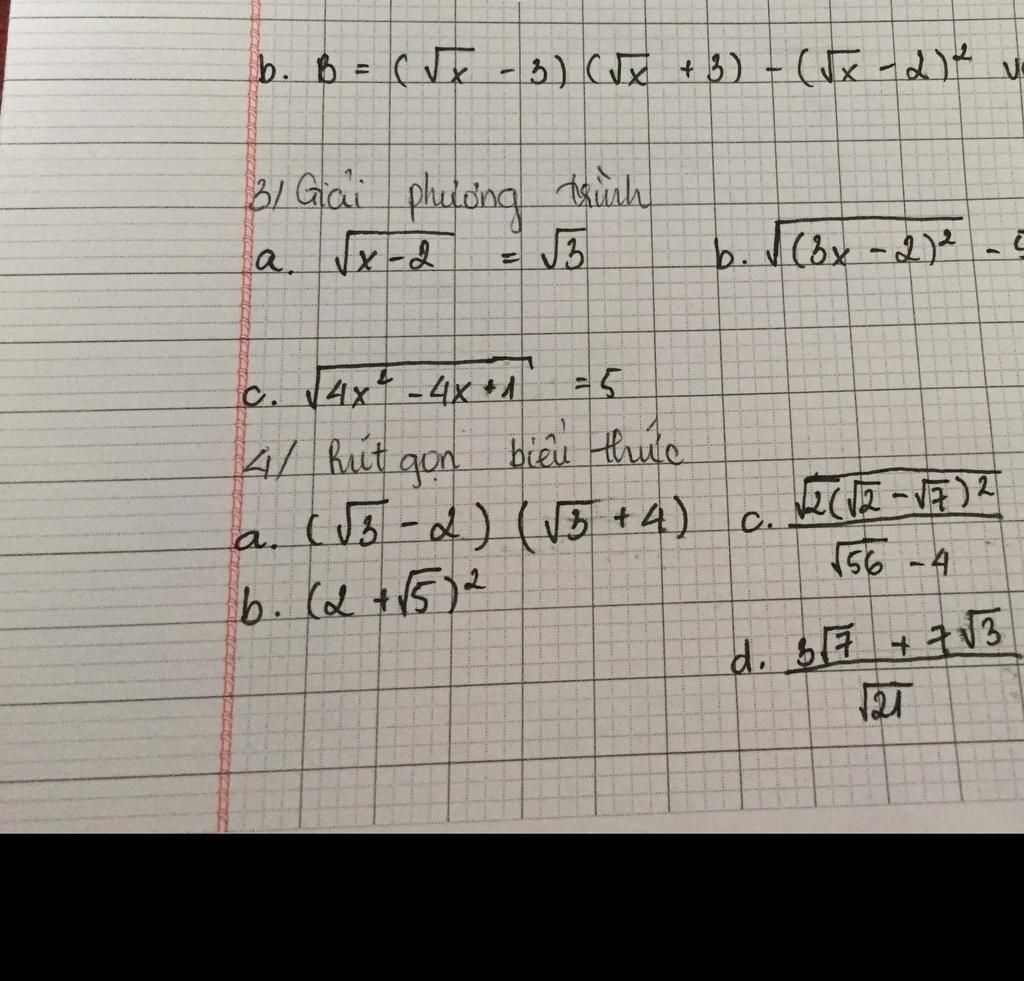 b. B = (√x - 3)(√x + 3) - (√x - 2)²
3/ Giải phương trình
a. √(x-2) = √3 b. √((3x - 2)²) -
c. √(4x² - 4x + 1) = 5
4/ Rút gọn biểu thức
a. (√3 - 2)(√3 + 4) c. √2(√2 - √7)² / (√56 - 4)
b. (2 + √5)²
d. (3√7 + 7√3) / √21